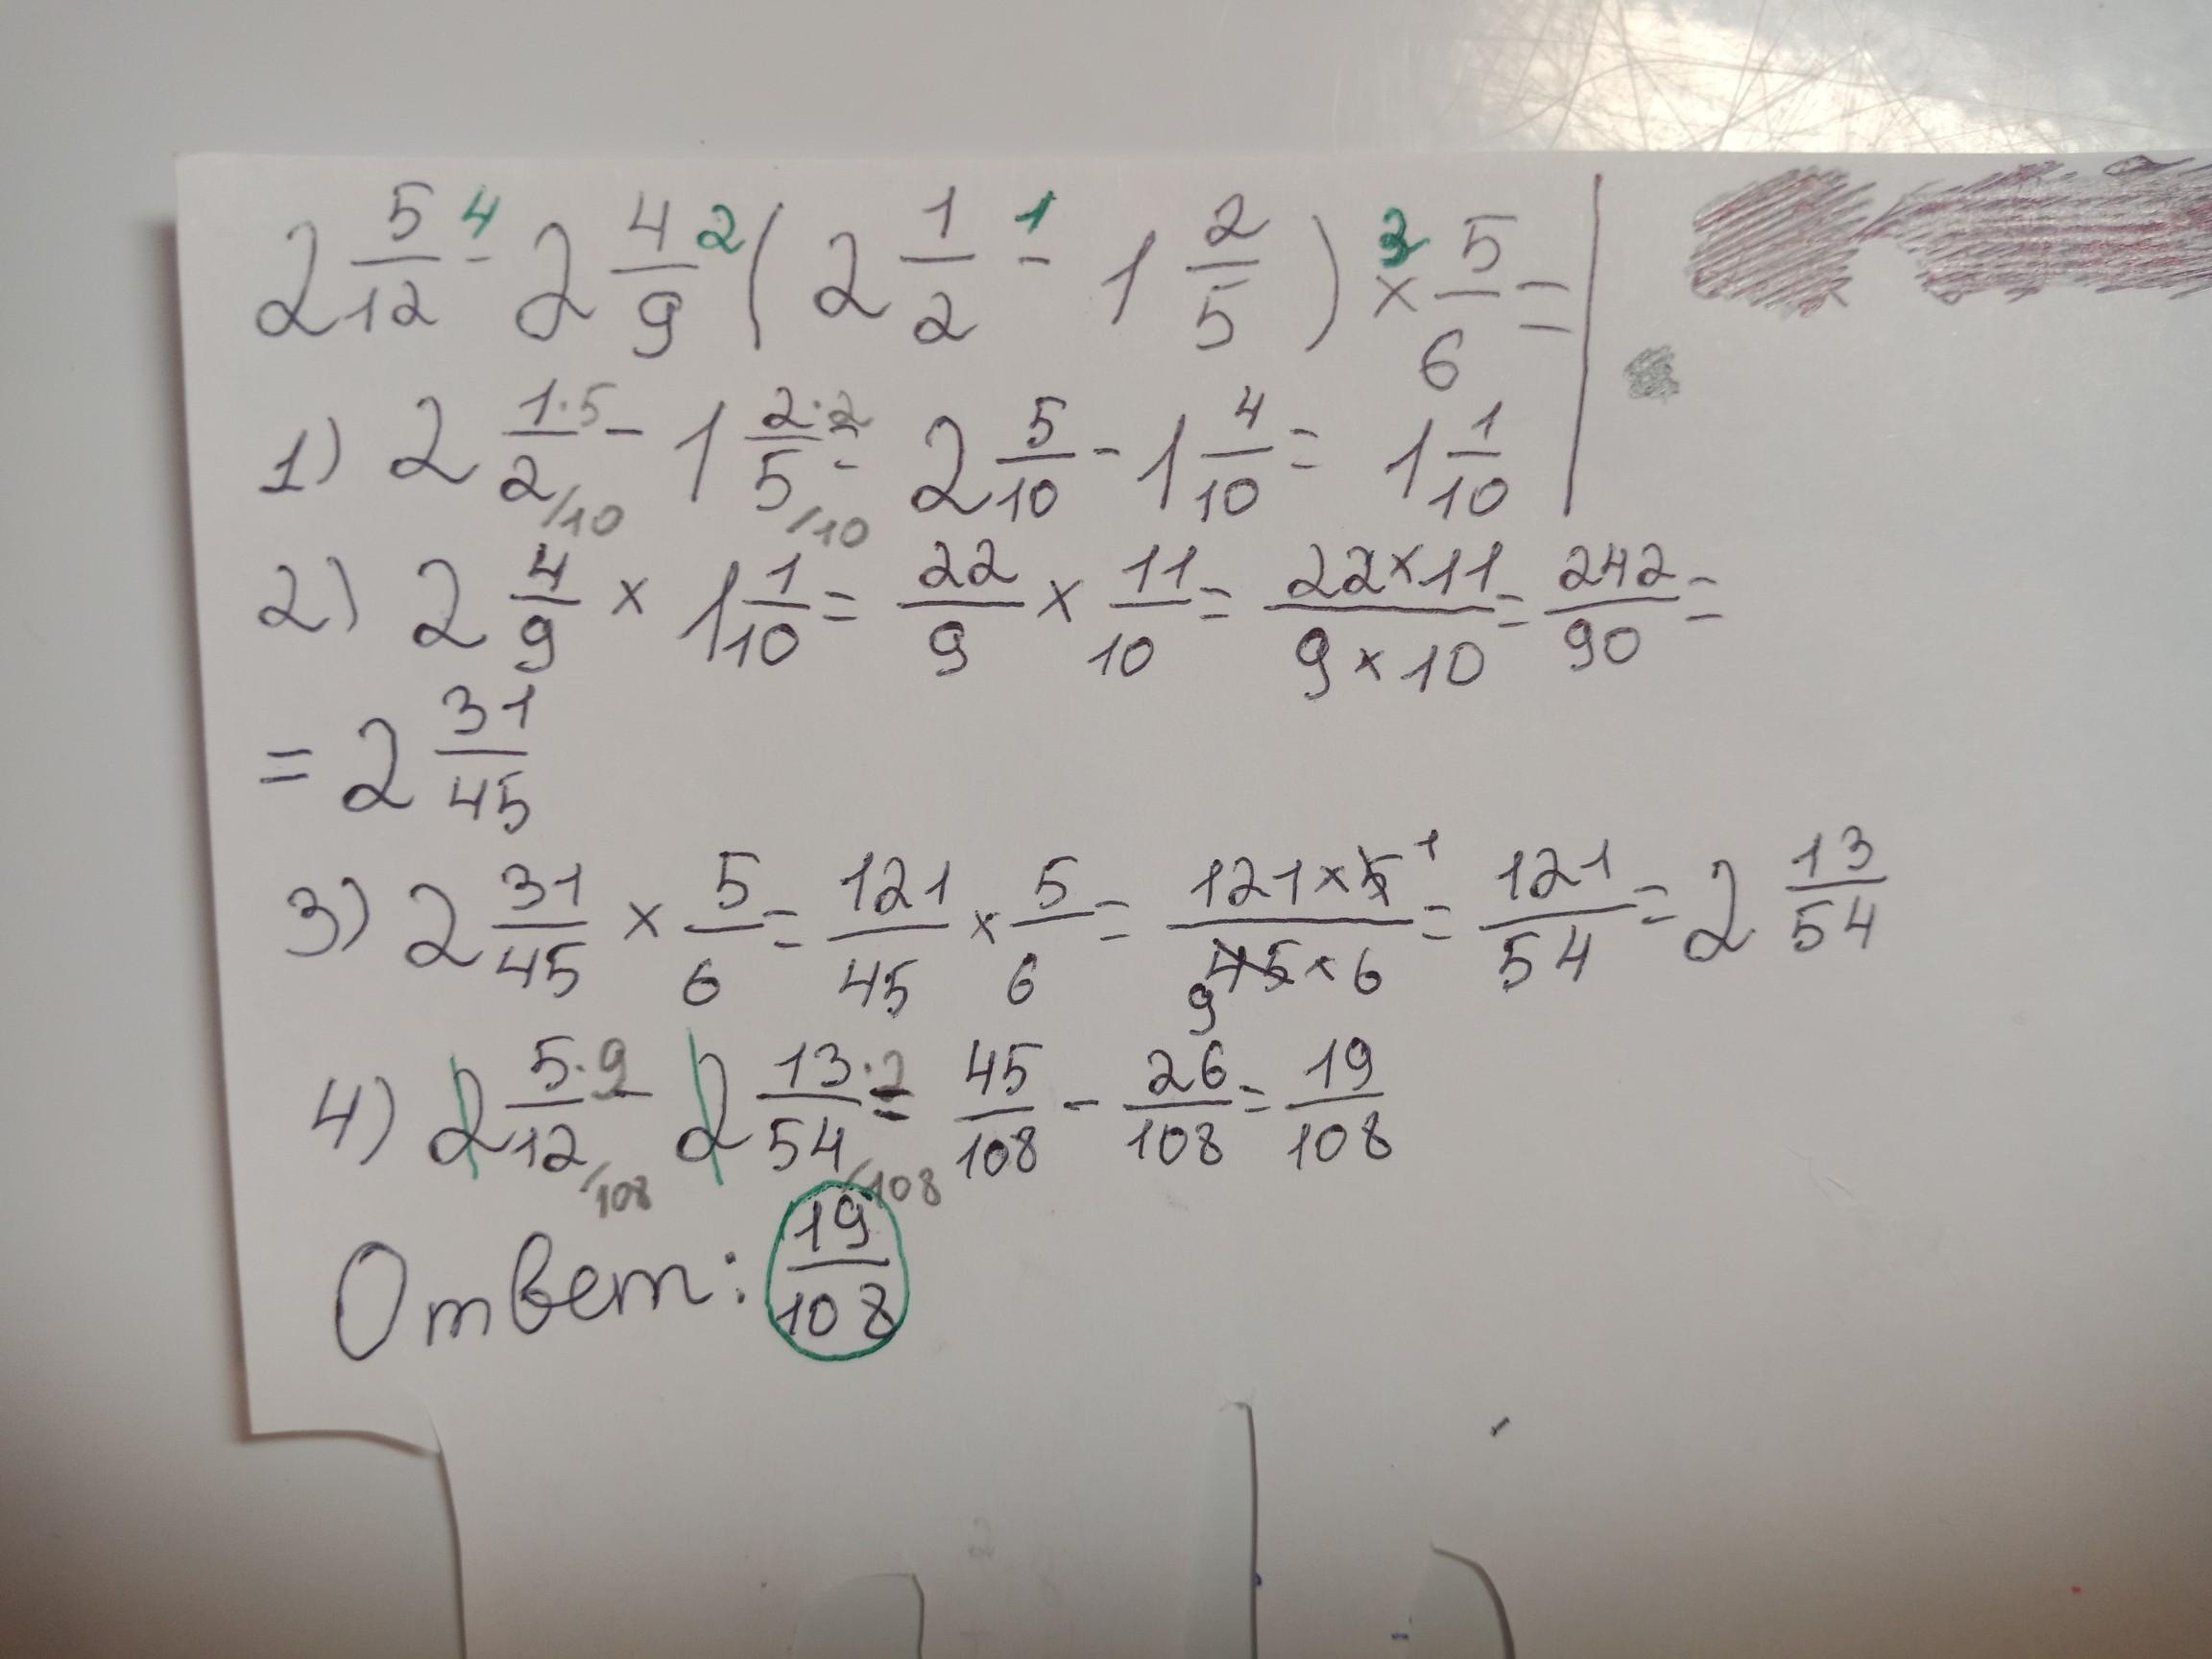 2 5/12 -⁴ 2 4/9 ²( 2 1/2 -¹ 1 2/5 ) ×³ 5/6 =
1) 2 1·5/2 /10 - 1 2·2/5 /10 = 2 5/10 - 1 4/10 = 1 1/10
2) 2 4/9 × 1 1/10 = 22/9 × 11/10 = 22×11/9×10 = 242/90 =
= 2 31/45
3) 2 31/45 × 5/6 = 121/45 × 5/6 = 121×5 1/9 45×6 = 121/54 = 2 13/54
4) 2 5·9/12 /108 - 2 13·2/54 /108 = 45/108 - 26/108 = 19/108
Ответ: 19/108